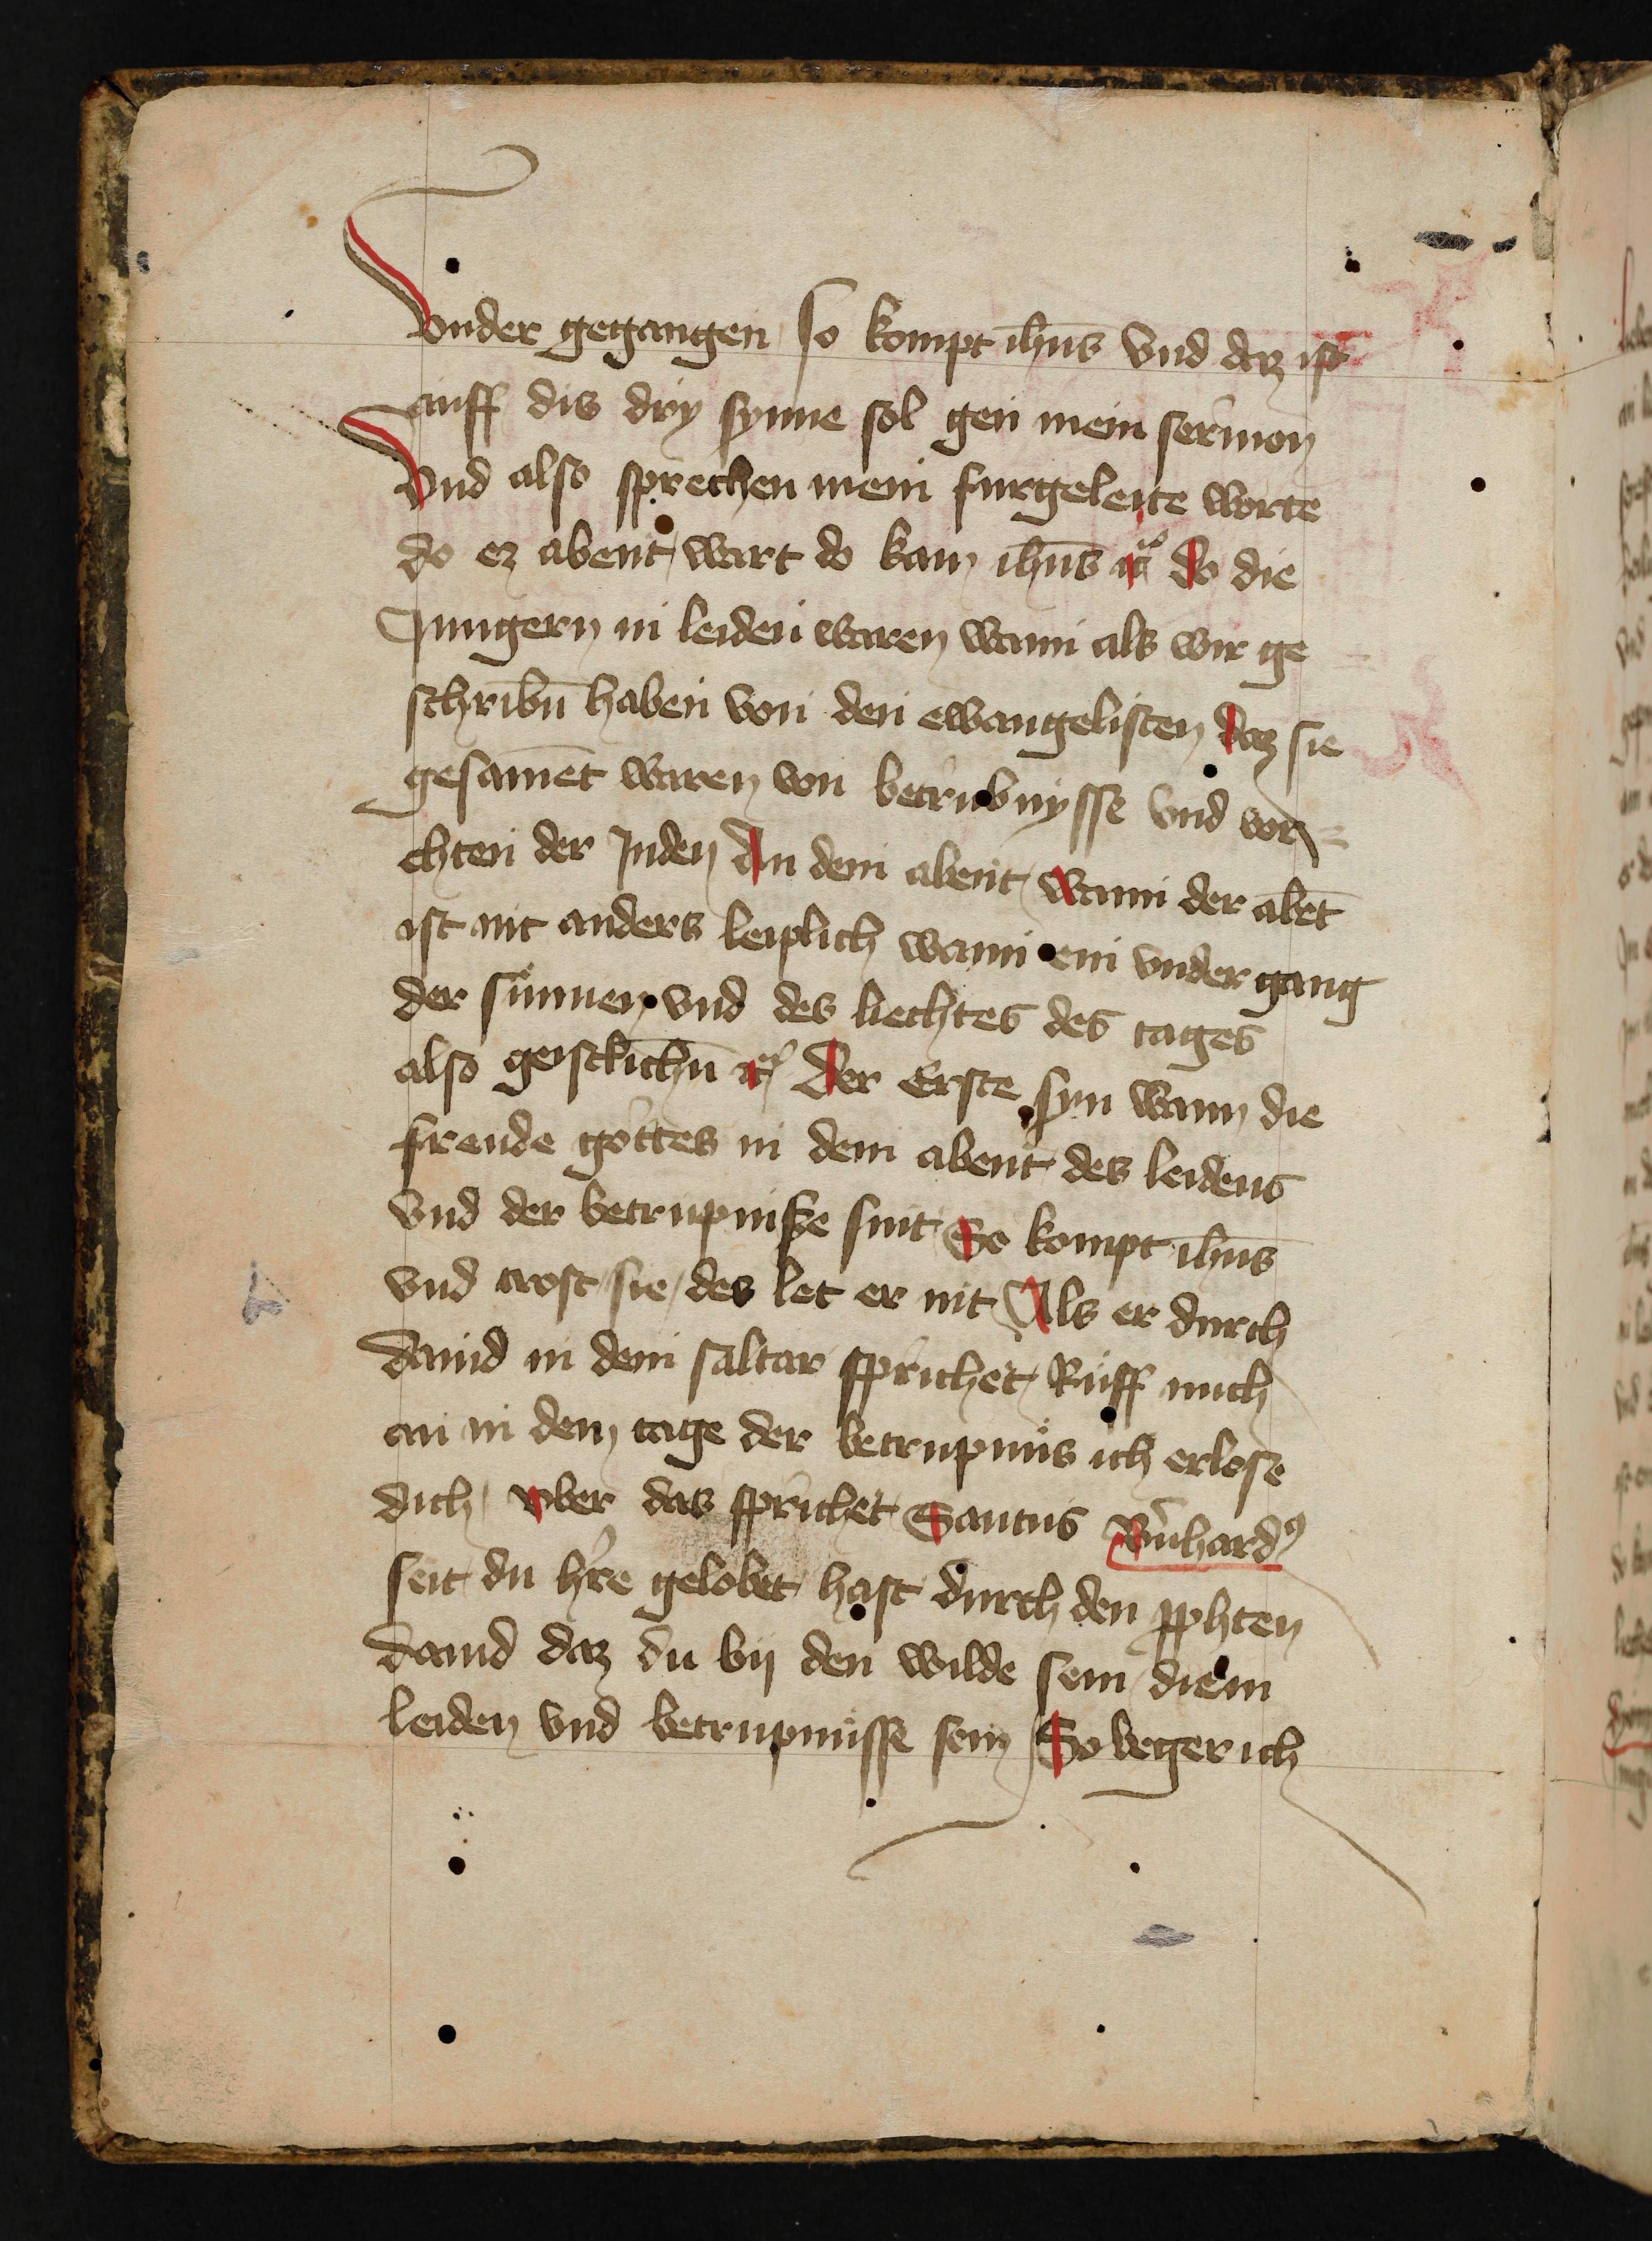 Vnder gegangen so kompt ihūs vnd daz ist
auff dis dry synne sol gen mein sermon
Vnd also sprechen mein furgeleite worte
do ez abent wart do kam ihūs ꝛc̄ Do die
Jungern in leiden waren wann als wir ge
schribn̄ haben von den ewangelisten Daz sie
gesamēt waren von betrubnysse vnd vor
chten der Juden An dem abent Wann der abēt
ist nit anders leiplich wann ein vnder gang
der sunnen vnd des liechtes des tages
also geistlichn̄ ꝛc̄ Der Erste syn wann die
freude gottes in dem abent des leidens
vnd der betrupnisse sint So kompt ihūs
vnd trost sie des let er nit Als er durch
dauid in dem saltar sprichet Ruff mich
an in dem tage der betrupnus ich erlose
dich vber das sprichet Santus Bn̄hardꝰ
seit du hre gelobet hast durch den pphten
dauid daz du bij den wilde sein die in
leiden vnd betrupnusse sein So beger ich